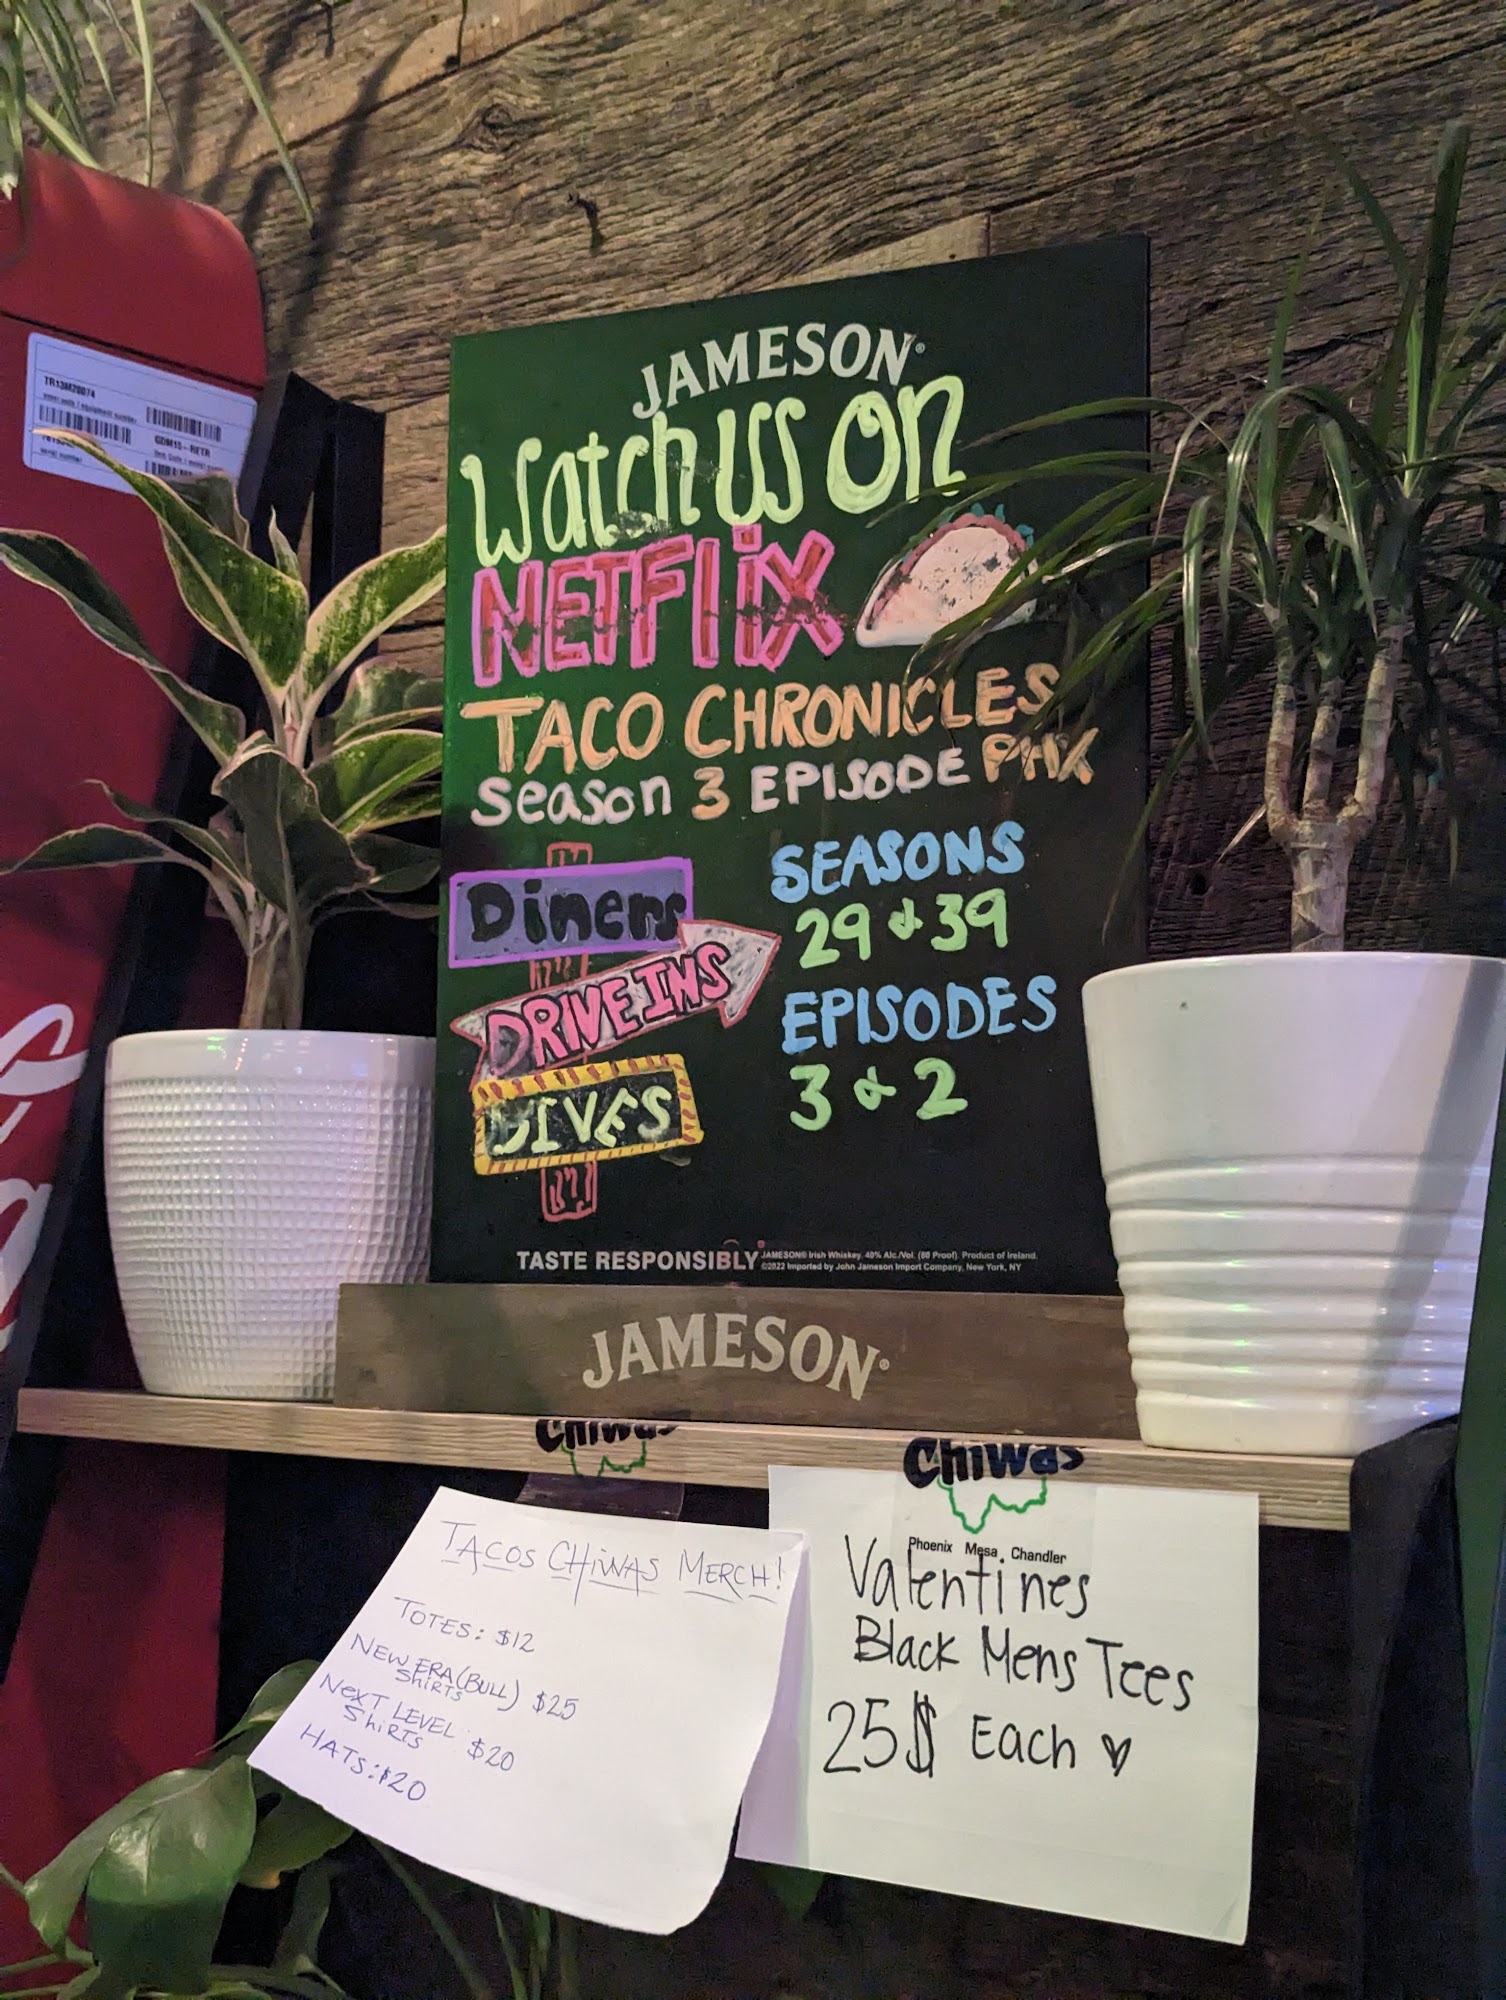 TR13M20074
GDM15-RETR
serial number
JAMESON®
Watch us on
NETFLIX
TACO CHRONICLES
Season 3 EPISODE PHX
Diners
DRIVE INS
DIVES
SEASONS
29 & 39
EPISODES
3 & 2
TASTE RESPONSIBLY
JAMESON® Irish Whiskey. 40% Alc./Vol. (80 Proof). Product of Ireland.
©2022 Imported by John Jameson Import Company, New York, NY
JAMESON®
Chiwas
TACOS CHIWAS MERCH!
TOTES: $12
NEW ERA (BULL) $25
SHIRTS
NEXT LEVEL: $20
SHIRTS
HATS: $20
Chiwas
Phoenix Mesa Chandler
Valentines
Black Mens Tees
25$ Each